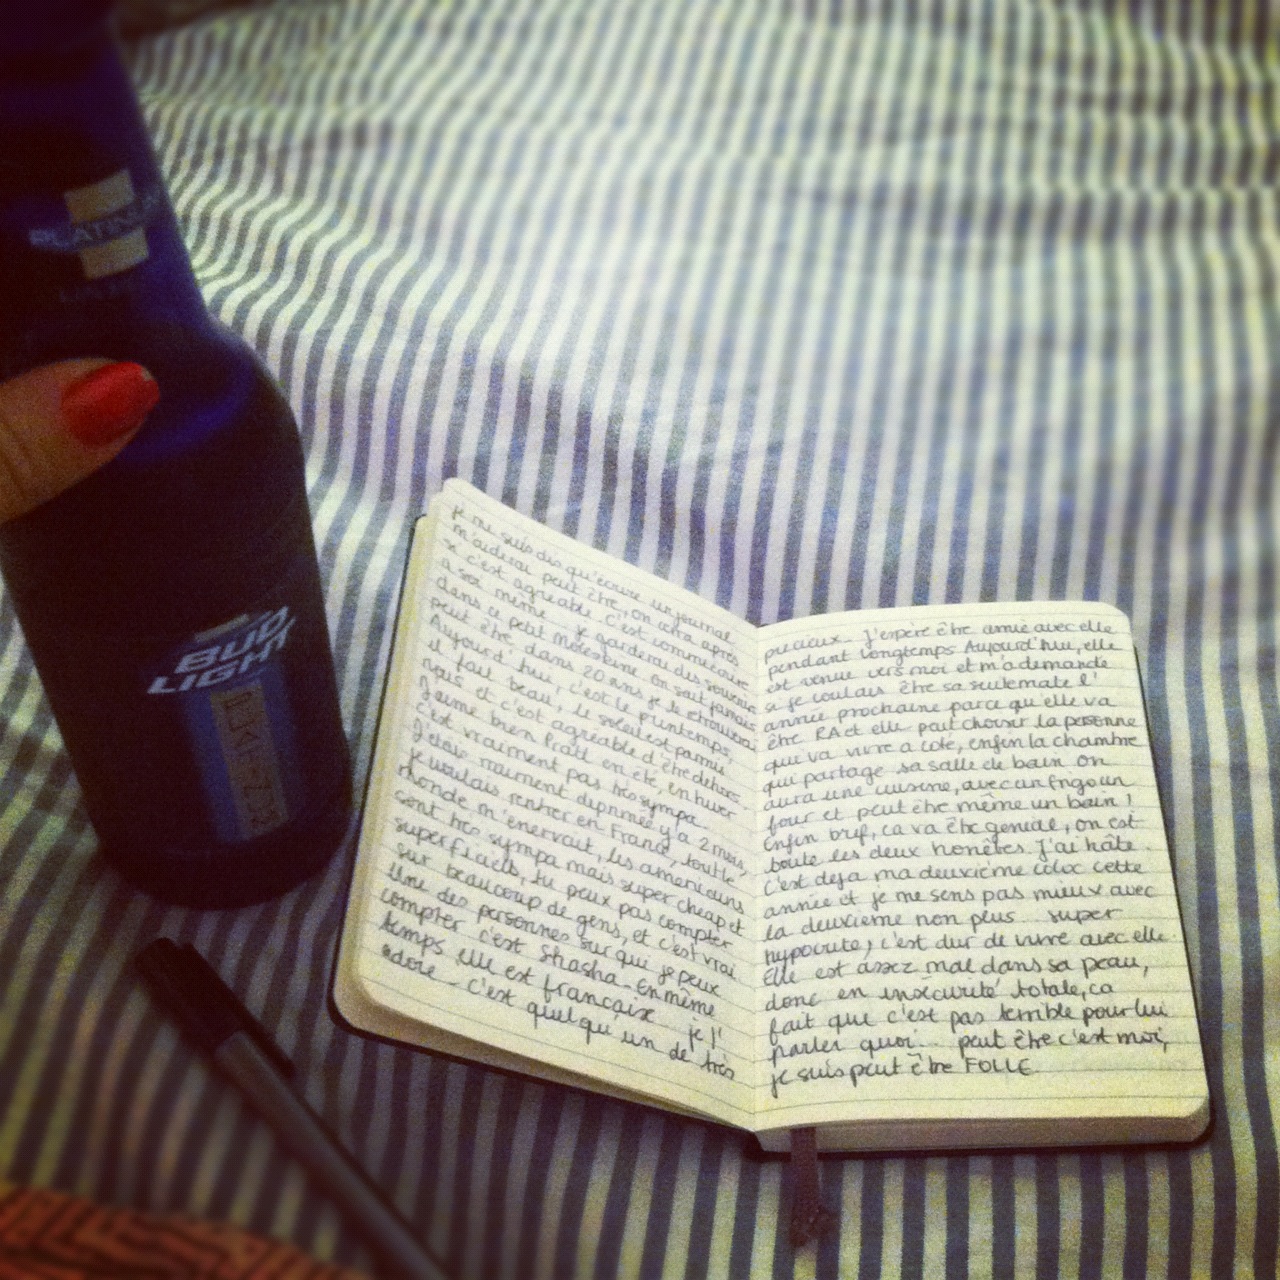 PLATINUM
BUD
LIGHT
je me suis dis qu'écrire un journal
m'aiderai peut être, on verra après
si c'est agréable. C'est comme écrire
a soi même. je garderai des souvenirs
dans ce petit moleskine on sait jamais
peut être dans 20 ans je le retrouverai
Aujourd'hui, c'est le printemps,
il fait beau, le soleil est parmis
nous et c'est agréable d'être dehors.
J'aime bien Pratt en été, en hiver
c'est vraiment pas très sympa.
J'étais vraiment déprimée y'a 2 mois,
je voulais rentrer en France, tout le
monde m'énervait, les américains
sont très sympa mais super cheap et
superficiels, tu peux pas compter
sur beaucoup de gens, et c'est vrai
Une des personnes sur qui je peux
compter c'est Shasha. En même
temps elle est française je l'
adore. c'est quelqu'un de très
précieux. J'espère être amie avec elle
pendant longtemps Aujourd'hui, elle
est venue vers moi et m'a demandé
si je voulais être sa seulemate l'
année prochaine parce qu'elle va
être RA et elle peut choisir la personne
qui va vivre a coté, enfin la chambre
qui partage sa salle de bain on
aura une cuisine, avec un frigo un
four et peut être même un bain !
Enfin bref, ça va être génial, on est
toute les deux honêtes J'ai hâte
C'est déjà ma deuxième coloc cette
année et je me sens pas mieux avec
la deuxième non plus ... super
hypocrite, c'est dur de vivre avec elle.
Elle est assez mal dans sa peau,
donc en insécurité totale, ça
fait que c'est pas terrible pour lui
parler quoi... peut être c'est moi,
je suis peut être FOLLE.